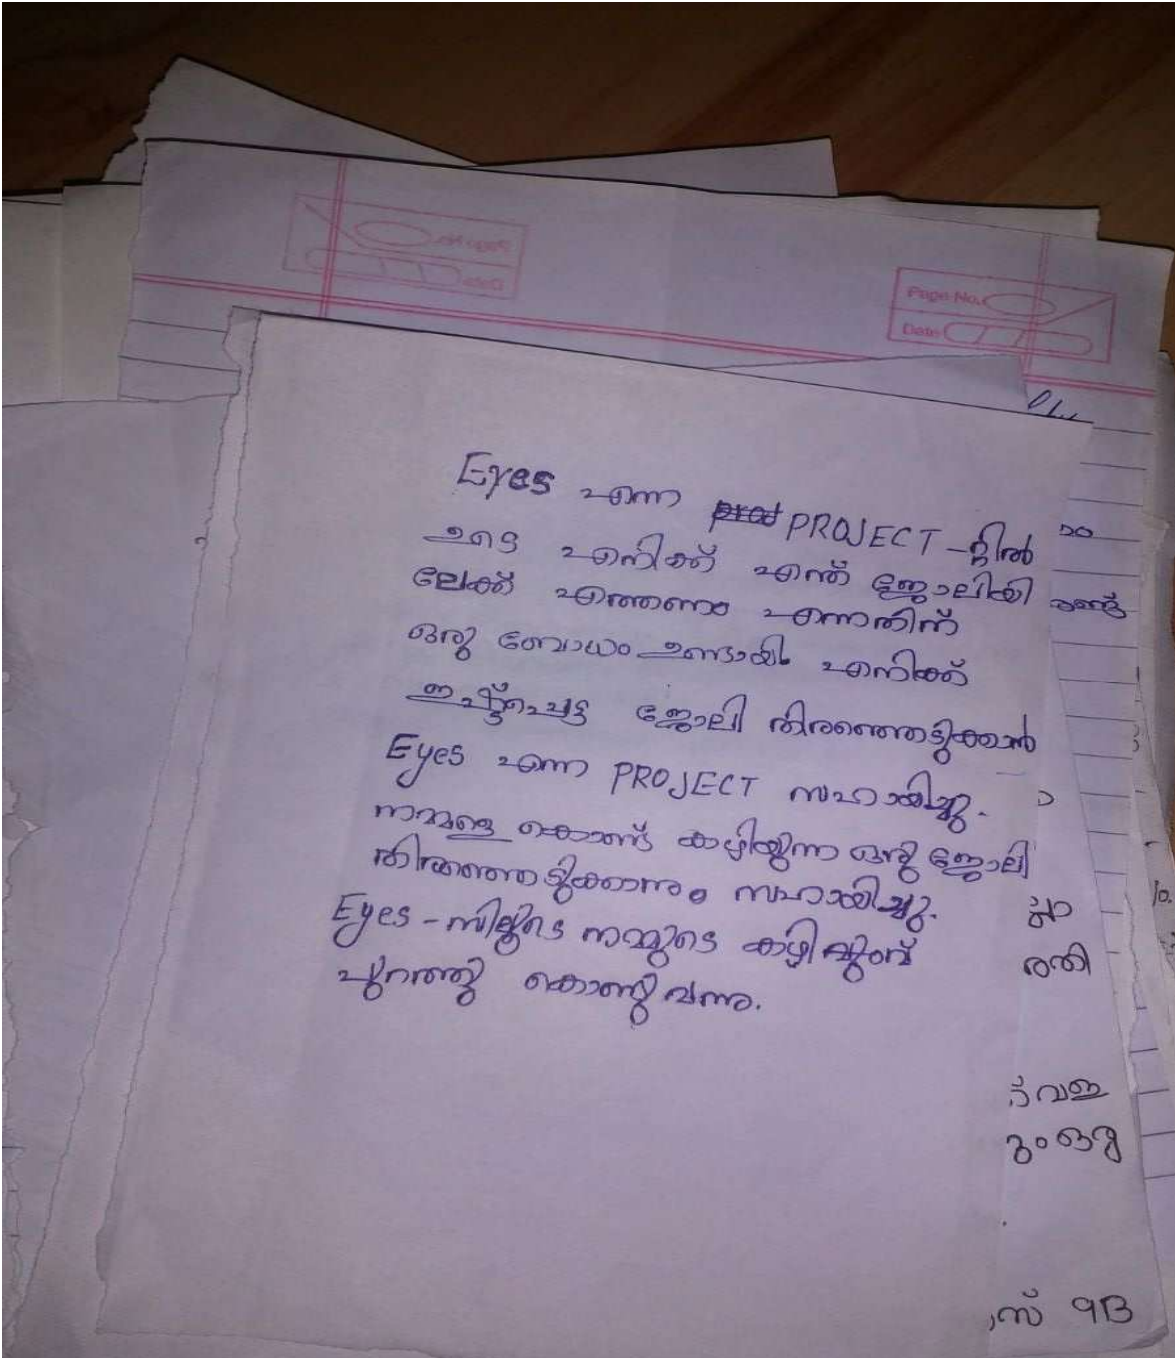 Page No.
Date
Eyes എന്ന PROJECT -റ്റിൽ
ഉടെ എനിക്ക് എന്ത് ജോലികി
ലേക്ക് എത്തണം എന്നതിന്
ഒരു ബോധം ഉണ്ടായി എനിക്ക്
ഇഷ്ട്ടപ്പെട്ട ജോലി തിരഞ്ഞെടുക്കാൻ
Eyes എന്ന PROJECT സഹായിച്ചു.
നമ്മളെ കൊണ്ട് കഴിയുന്ന ഒരു ജോലി
തിരഞ്ഞെടുക്കാനും സഹായിച്ചു.
Eyes -സിലൂടെ നമ്മുടെ കഴിവും
പുറത്തു കൊണ്ടുവന്നു.
സ് 9B